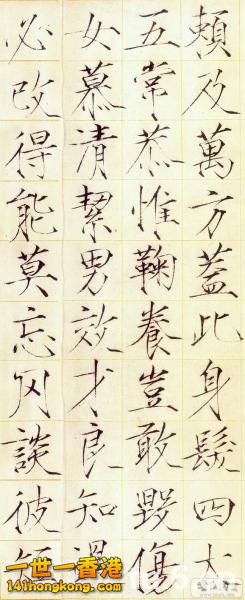 賴及萬方蓋此身髮四大
五常恭惟鞠養豈敢毀傷
女慕清絜男效才良知過
必改得能莫忘罔談彼短
一世一香港
141hongkong.com